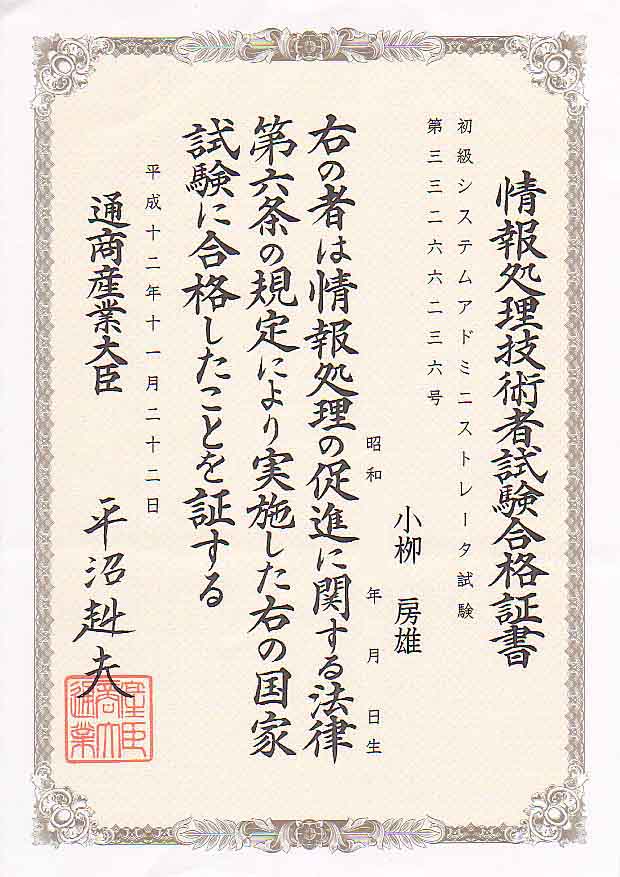 情報処理技術者試験合格証書
初級システムアドミニストレータ試験
第三三二六六二三六号
小柳 房雄
昭和 年 月 日生
右の者は情報処理の促進に関する法律
第六条の規定により実施した右の国家
試験に合格したことを証する
平成十二年十一月二十二日
通商産業大臣
平沼赳夫
通商産業大臣